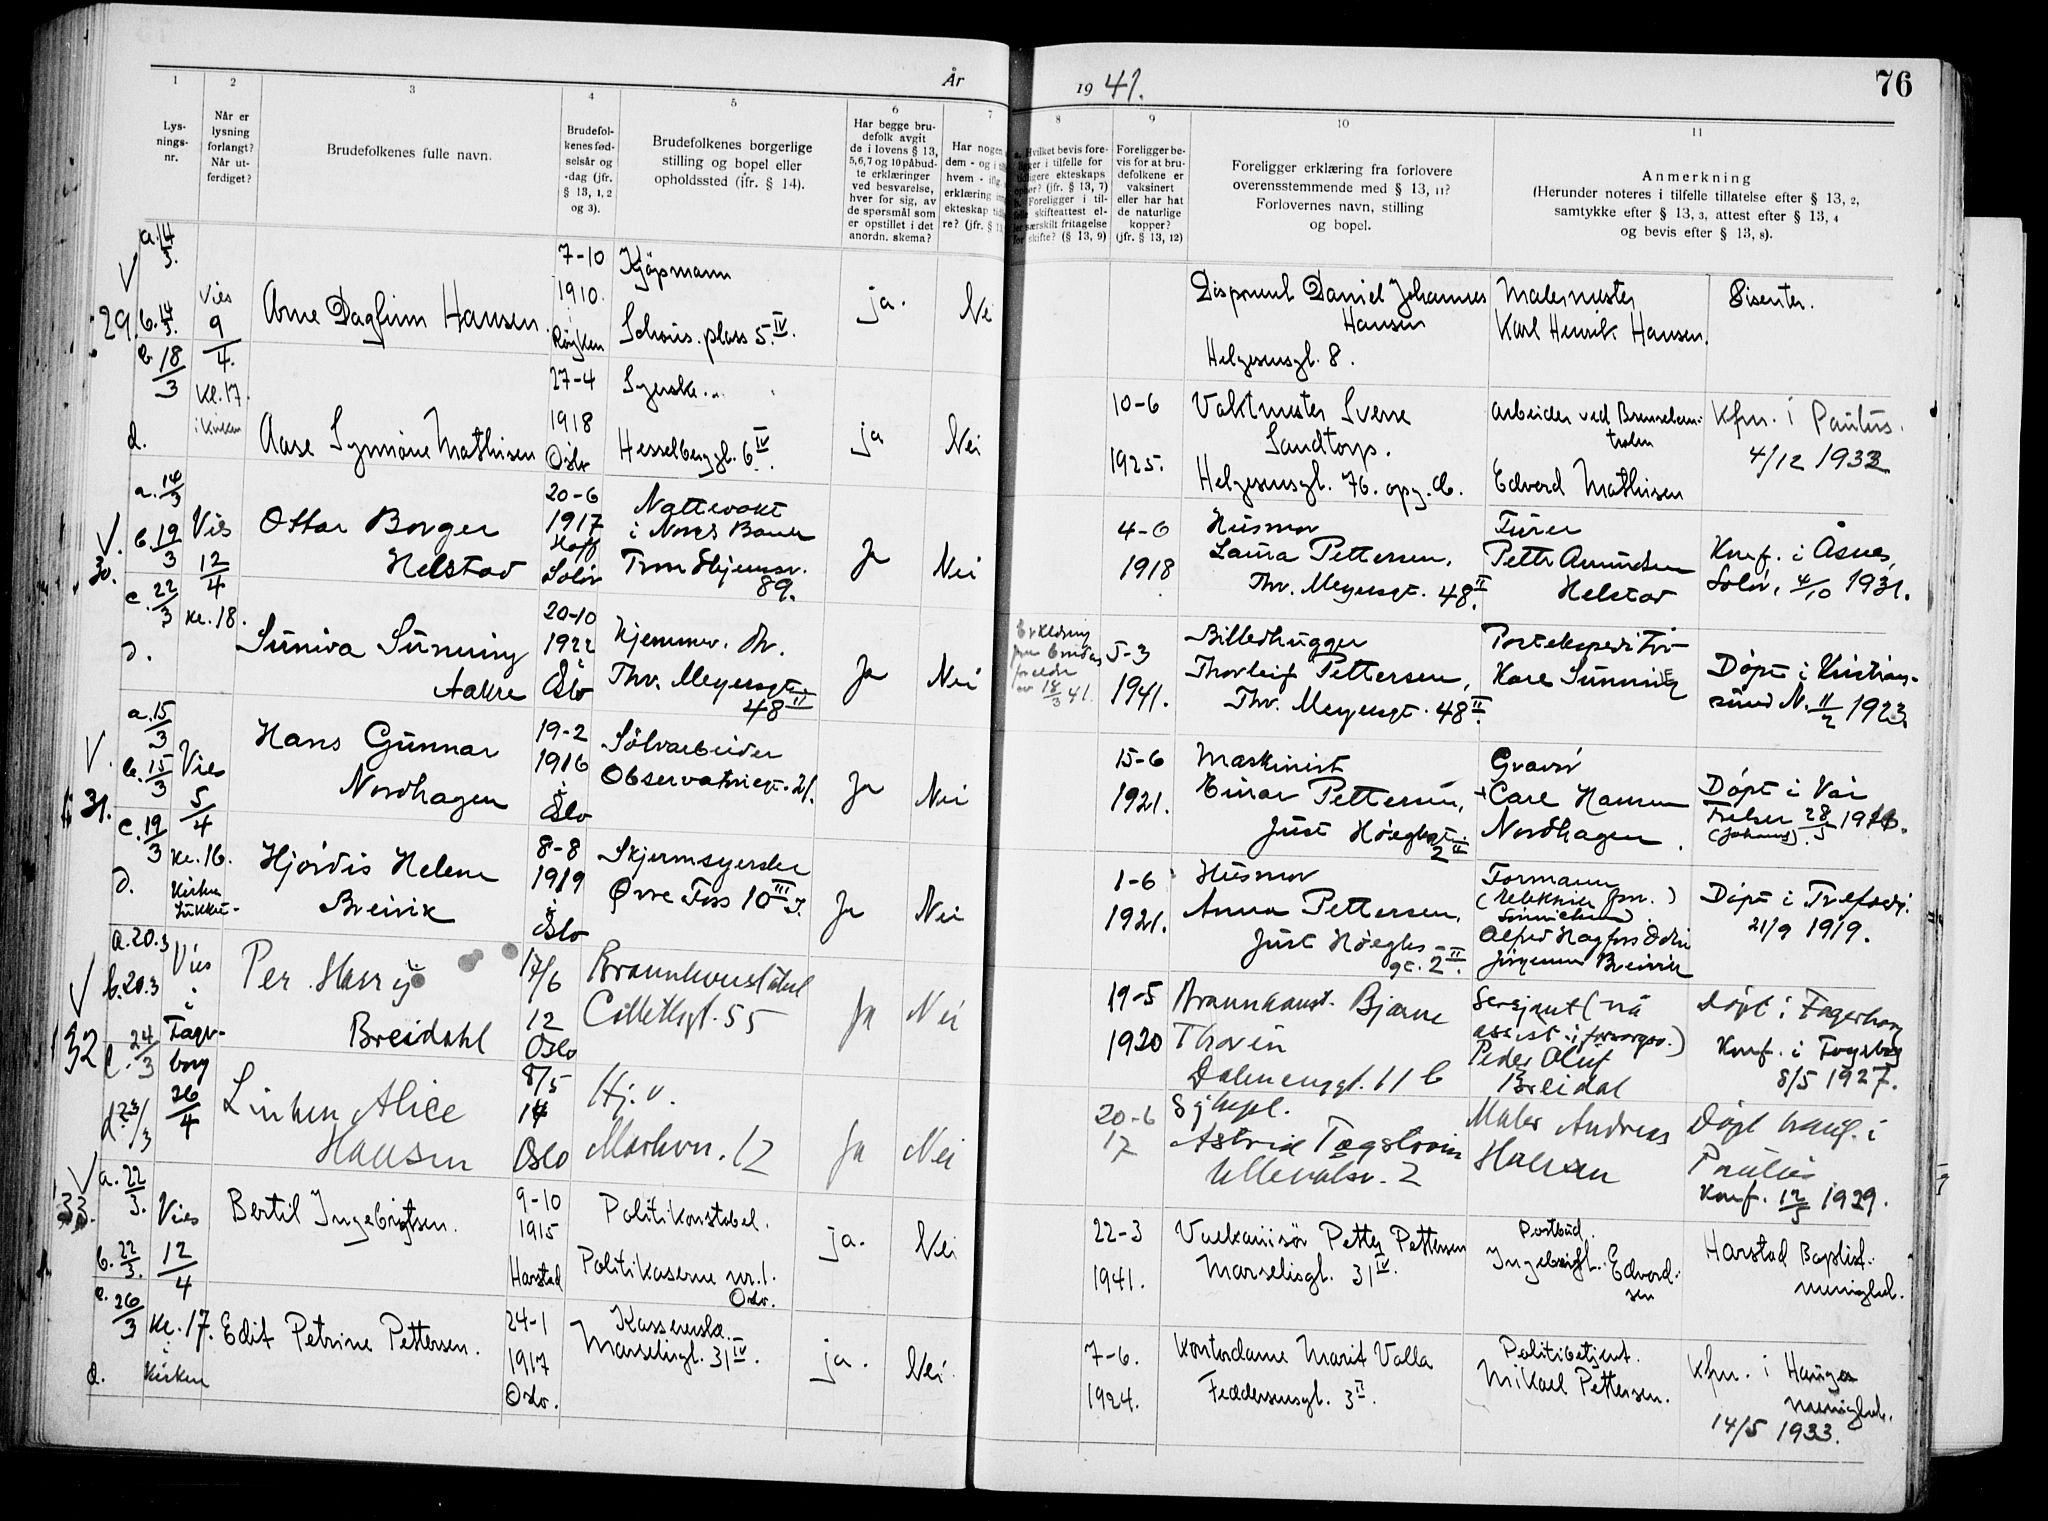 År 1941.
76
1
2
3
4
5
6
7
8
9
10
11
Lys-
nings-
nr.
Når er
lysning
forlangt?
Når ut-
ferdiget?
Brudefolkenes fulle navn.
Brudefol-
kenes fød-
selsår og
-dag (jfr.
§ 13, 1, 2
og 3).
Brudefolkenes borgerlige
stilling og bopel eller
opholdssted (ifr. § 14).
Har begge bru-
defolk avgit
de i lovens § 13,
5, 6, 7 og 10 påbud-
te erklæringer
ved besvarelse,
hver for sig, av
de spørsmål som
er opstillet i det
anordn. skema?
Har nogen
dem - og i
hvem - ifl.
erklæring
ekteskap
re? (jfr. §
Hvilket bevis fore-
ligger i tilfelle for
tidligere ekteskaps
ophør? (jfr. § 13, 7)
Foreligger i til-
felle skifteattest el-
ler særskilt fritagelse
for skifte? (§ 13, 9)
Foreligger be-
vis for at bru-
defolkene er
vaksinert
eller har hat
de naturlige
kopper?
(jfr. § 13, 12)
Foreligger erklæring fra forlovere
overensstemmende med § 13, 11?
Forlovernes navn, stilling
og bopel.
Anmerkning
(Herunder noteres i tilfelle tillatelse efter § 13, 2,
samtykke efter § 13, 3, attest efter § 13, 4
og bevis efter § 13, 8).
29.
a. 14/3.
b. 14/3.
18/3
d.
Vies
9/4.
Kl. 17.
i kirken
Arne Dagfinn Hansen.
7-10
1910.
Røyken
Kjøpmann
Schous plass 5 IV.
ja.
Nei
Disponent Daniel Johannes
Hansen
Helgesensgt. 8.
Malermester
Karl Henrik Hansen.
Disenter.
Aase Symöne Mathisen
27-4
1918
Oslo
Syerske
Hesselbergsgt. 6 IV.
ja
Nei
10-6
1925.
Vaktmester Sverre
Sandtorp.
Helgesensgt. 76. opg.
Arbeider ved
Edvard Mathisen
Kfm. i Paulus.
4/12 1933
30.
a. 14/3
b. 19/3
c. 22/3
d.
Vies
12/4
Kl. 18.
Ottar Borger
Helstad
20-6
1917
Hoff
Solør
Nattevakt
i Norges Bank
Trondhjemsv.
89.
Ja
Nei
4-6
1918
Husmor
Laura Pettersen,
Thv. Meyersgt. 48 II.
Furer
Petter Amundsen
Helstad
Konf. i Åsnes,
Solør, 4/10 1931.
Suniva Sunning
Aakre
20-10
1922
Oslo
Hjemmev. dtr.
Thv. Meyersgt.
48 II
Ja
Nei
Erklæring
foreldre
av 18/3 41.
5-3
1941.
Billedhugger
Thorleif Pettersen,
Thv. Meyersgt. 48 II.
Postekspeditør
Kåre Sunning
Døpt i Kristian-
sund N. 11/2 1923
31.
a. 15/3
b. 15/3
c. 19/3
d.
Vies
5/4
Kl. 16.
Kirken
Hans Gunnar
Nordhagen
19-2
1916
i
Oslo
Sølvarbeider
Observatoriegt. 21.
Ja
Nei
15-6
1921.
Maskinist
Einar Pettersen,
Just Høeghsgt.
2 II
Gravør
Carl Hansen
Nordhagen.
Døpt i Vår
Frelser 28/5 1916.
Hjørdis Helene
Breivik
8-8
1919
i
Oslo
Skjermsyerske
Øvre Foss 10 III
Ja
Nei
1-6
1921.
Husmor
Anna Pettersen,
Just Høeghs
gt. 2 II.
Formann
Alfred Hagfors
Jørgensen Breivik
Døpt i Trefoldigh.
21/9 1919.
132
a. 20.3
b. 20.3
c. 24/3
d. 23/3
Vies
i
Fager-
borg
26/4
Per Harry
Breidahl
17/6
12
Oslo
Brannkonstabel
Collettsgt. 55
Ja
Nei
19-5
1920
Brannkonst. Bjarne
Thorén
Dalenenggt. 11 b
Sersjant (nå
assist. i forsorgsv.)
Peder Oluf
Breidal
Døpt i Fagerborg
Konf. i Fagerborg
8/5 1927.
Linken Alice
Hansen
8/5
14
Oslo
Hj. v.
Markvn. 12
Ja
Nei
20-6
17
Sykepl.
Astrid Tøgstrøm
Ullevålsv. 2
Maler Andreas
Hansen
Døpt konf. i
Paulus
Konf. 12/5 1929.
133.
a. 22/3.
b. 22/3.
c. 26/3
d.
Vies
12/4
Kl. 17.
i
kirken
Bertil Ingebrigtsen.
9-10
1915
Harstad
Politikonstabel.
Politikaserne nr. 1.
Oslo.
ja.
Nei
22-3
1941.
Vulkanisør Petter Pettersen
Marselisgt. 31 IV.
Postbud.
Ingebrigt Edvard-
sen
Harstad Baptist-
menighet.
Edit Petrine Pettersen.
24-1
1917
Oslo.
Kassererske.
Marselisgt. 31 IV.
ja.
Nei.
7-6.
1924.
Kontordame Marit Valla
Feddersensgt. 3 II.
Politibetjent.
Mikael Pettersen.
Kfm. i Hauges
menighet.
14/5 1933.